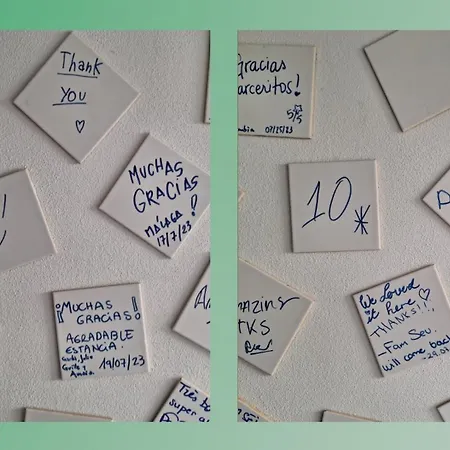 Thank
YOU
♡
MUCHAS
GRACIAS
MÁLAGA !
17/7/23
¡MUCHAS
GRACIAS!
AGRADABLE
ESTANCIA.
19/07/23
Três
super
Gracias
arceritos!
5/5
07/25/23
10*
AMAZING
We Loved
it here ♡
THANKS!!
-Fam Seu.
will come back